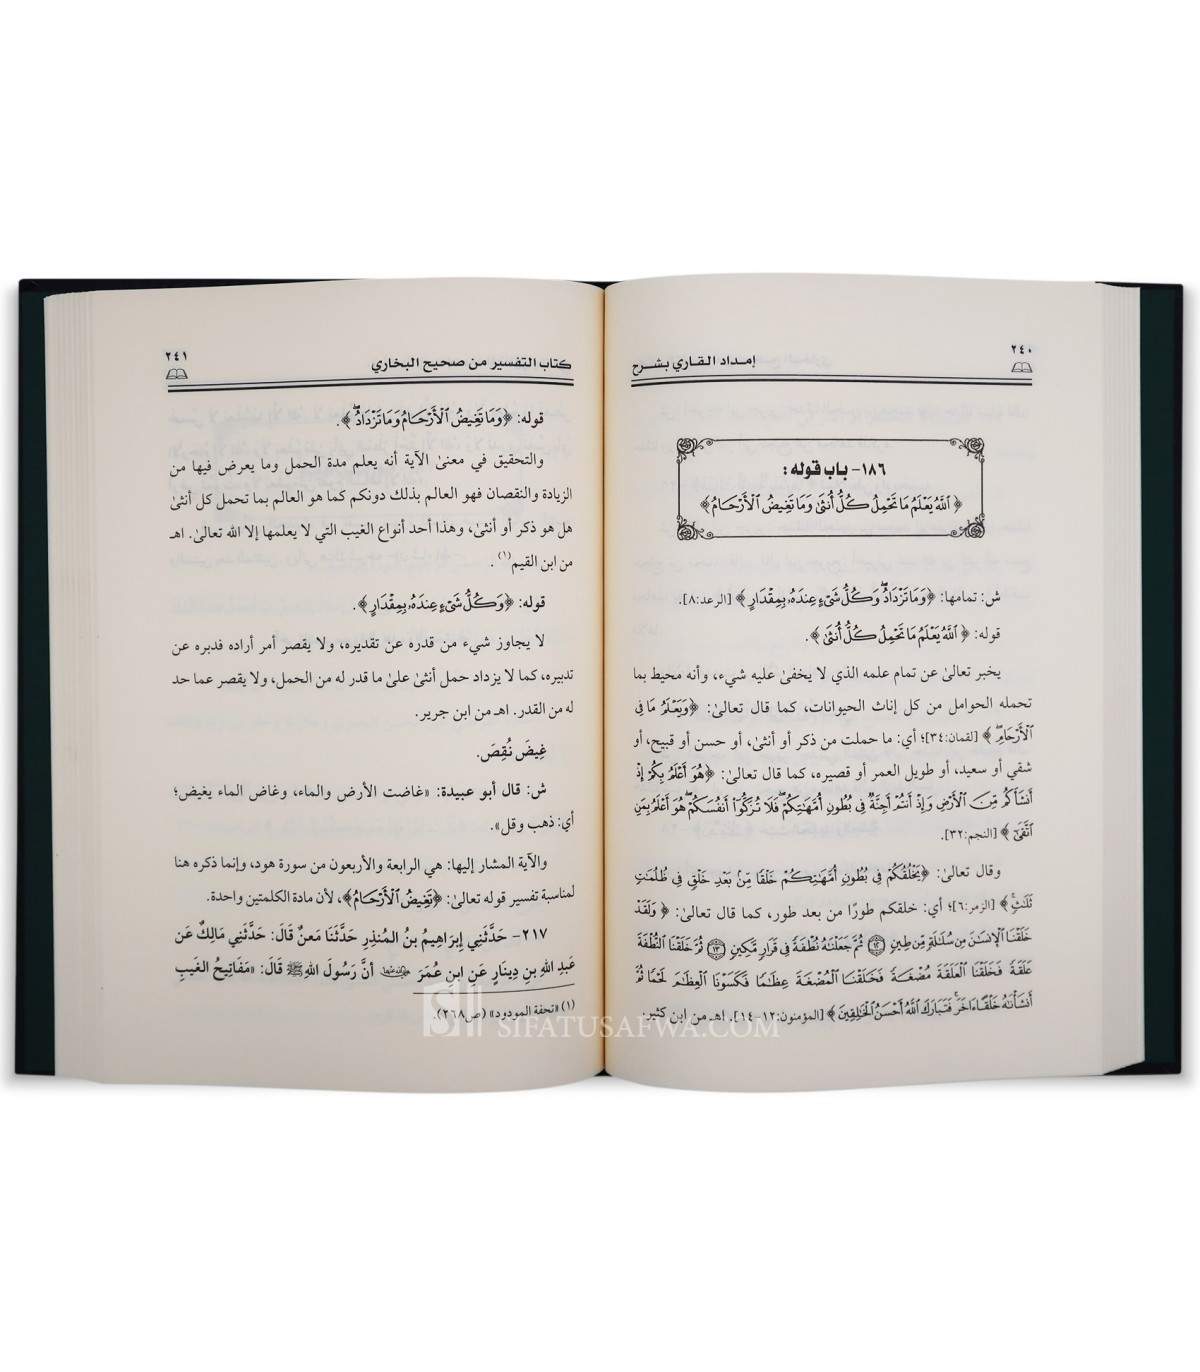 ٢٤٠
إمداد القاري بشرح
١٨٦- باب قوله:
﴿ٱللَّهُ يَعْلَمُ مَا تَحْمِلُ كُلُّ أُنثَىٰ وَمَا تَغِيضُ ٱلْأَرْحَامُ﴾
ش: تمامها: ﴿وَمَا تَزْدَادُۖ وَكُلُّ شَىْءٍ عِندَهُۥ بِمِقْدَارٍ﴾ [الرعد:٨].
قوله: ﴿ٱللَّهُ يَعْلَمُ مَا تَحْمِلُ كُلُّ أُنثَىٰ﴾.
يخبر تعالىٰ عن تمام علمه الذي لا يخفىٰ عليه شيء، وأنه محيط بما
تحمله الحوامل من كل إناث الحيوانات، كما قال تعالىٰ: ﴿وَيَعْلَمُ مَا فِى
ٱلْأَرْحَامِۖ﴾ [لقمان:٣٤]؛ أي: ما حملت من ذكر أو أنثىٰ، أو حسن أو قبيح، أو
شقي أو سعيد، أو طويل العمر أو قصيره، كما قال تعالىٰ: ﴿هُوَ أَعْلَمُ بِكُمْ إِذْ
أَنشَأَكُم مِّنَ ٱلْأَرْضِ وَإِذْ أَنتُمْ أَجِنَّةٌ فِى بُطُونِ أُمَّهَٰتِكُمْۖ فَلَا تُزَكُّوٓا۟ أَنفُسَكُمْۖ هُوَ أَعْلَمُ بِمَنِ
ٱتَّقَىٰٓ﴾ [النجم:٣٢].
وقال تعالىٰ: ﴿يَخْلُقُكُمْ فِى بُطُونِ أُمَّهَٰتِكُمْ خَلْقًا مِّنۢ بَعْدِ خَلْقٍ فِى ظُلُمَٰتٍ
ثَلَٰثٍۚ﴾ [الزمر:٦]؛ أي: خلقكم طورًا من بعد طور، كما قال تعالىٰ: ﴿وَلَقَدْ
خَلَقْنَا ٱلْإِنسَٰنَ مِن سُلَٰلَةٍ مِّن طِينٍ ١٢ ثُمَّ جَعَلْنَٰهُ نُطْفَةً فِى قَرَارٍ مَّكِينٍ ١٣ ثُمَّ خَلَقْنَا ٱلنُّطْفَةَ
عَلَقَةً فَخَلَقْنَا ٱلْعَلَقَةَ مُضْغَةً فَخَلَقْنَا ٱلْمُضْغَةَ عِظَٰمًا فَكَسَوْنَا ٱلْعِظَٰمَ لَحْمًا ثُمَّ
أَنشَأْنَٰهُ خَلْقًا ءَاخَرَۚ فَتَبَارَكَ ٱللَّهُ أَحْسَنُ ٱلْخَٰلِقِينَ﴾ [المؤمنون:١٢-١٤]. اهـ من ابن كثير.
كتاب التفسير من صحيح البخاري
٢٤١
قوله: ﴿وَمَا تَغِيضُ ٱلْأَرْحَامُ وَمَا تَزْدَادُۖ﴾.
والتحقيق في معنىٰ الآية أنه يعلم مدة الحمل وما يعرض فيها من
الزيادة والنقصان فهو العالم بذلك دونكم كما هو العالم بما تحمل كل أنثىٰ
هل هو ذكر أو أنثىٰ، وهذا أحد أنواع الغيب التي لا يعلمها إلا الله تعالىٰ. اهـ
من ابن القيم(١).
قوله: ﴿وَكُلُّ شَىْءٍ عِندَهُۥ بِمِقْدَارٍ﴾.
لا يجاوز شيء من قدره عن تقديره، ولا يقصر أمر أراده فدبره عن
تدبيره، كما لا يزداد حمل أنثىٰ علىٰ ما قدر له من الحمل، ولا يقصر عما حد
له من القدر. اهـ من ابن جرير.
غِيضَ نُقِصَ.
ش: قال أبو عبيدة: «غاضت الأرض والماء، وغاض الماء يغيض؛
أي: ذهب وقل».
والآية المشار إليها: هي الرابعة والأربعون من سورة هود، وإنما ذكره هنا
لمناسبة تفسير قوله تعالىٰ: ﴿تَغِيضُ ٱلْأَرْحَامُ﴾، لأن مادة الكلمتين واحدة.
٢١٧- حَدَّثَنِي إِبرَاهِيمُ بنُ المُنذِرِ حَدَّثَنَا مَعنٌ قَالَ: حَدَّثَنِي مَالِكٌ عَن
عَبدِ اللهِ بنِ دِينَارٍ عَنِ ابنِ عُمَرَ رضي الله عنهما أَنَّ رَسُولَ اللهِ ﷺ قَالَ: «مَفَاتِيحُ الغَيبِ
(١) «تحفة المودود» (ص٢٦٨).
SIFATUSAFWA.COM